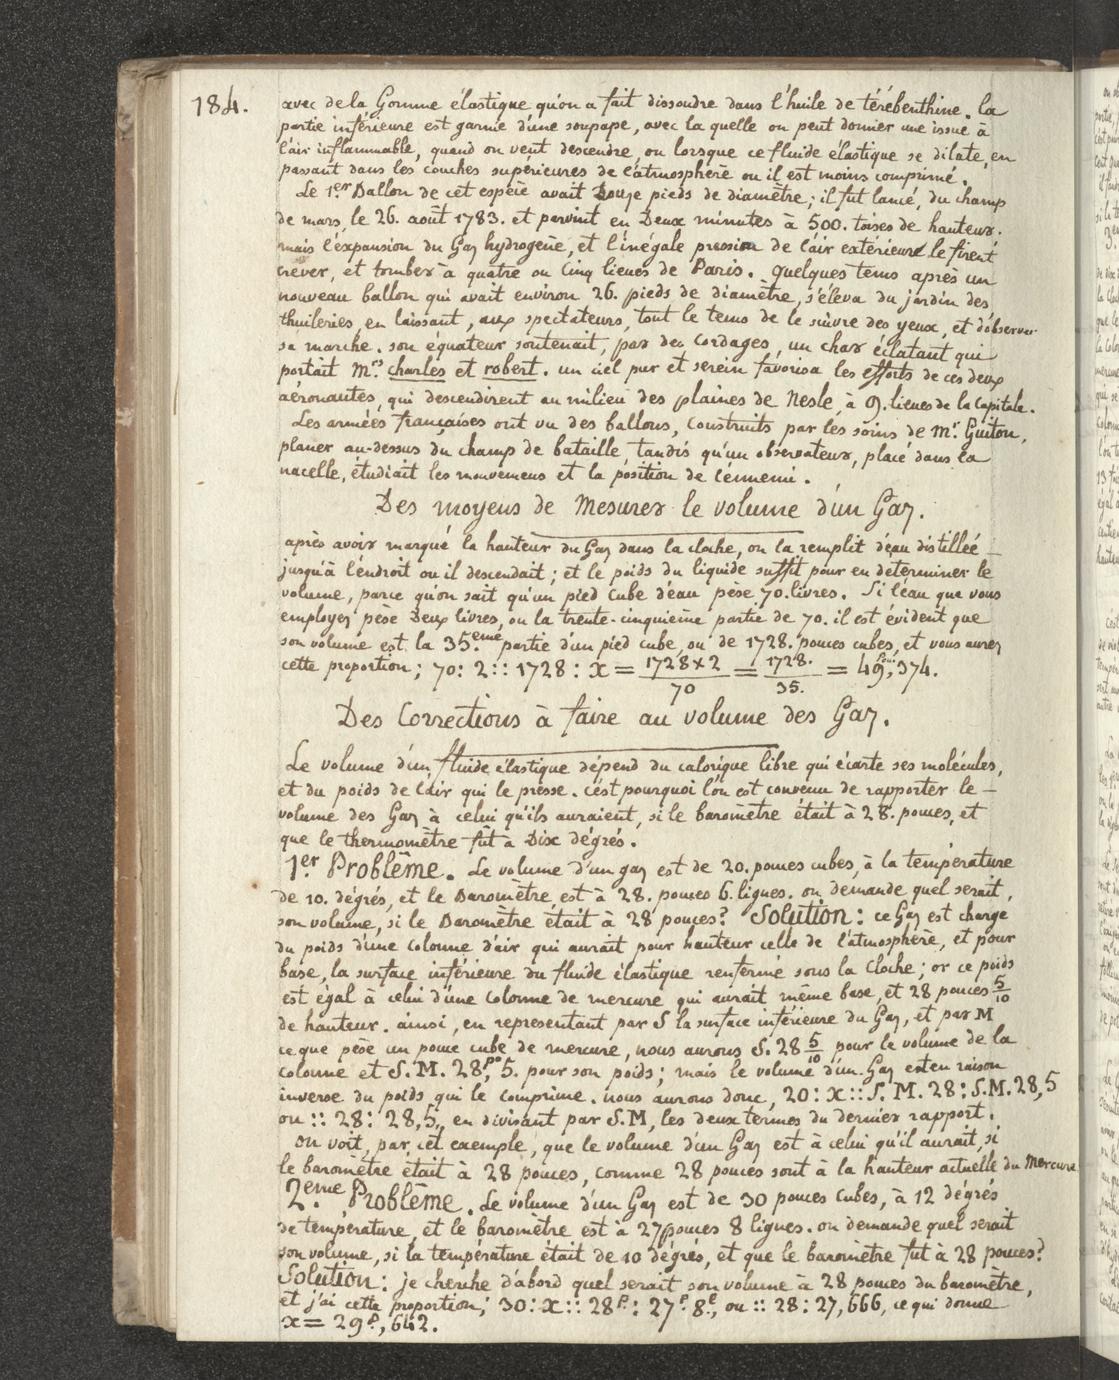 184.
avec de la Gomme élastique qu'on a fait dissoudre dans l'huile de térébenthine. la
partie inférieure est garnie d'une soupape, avec la quelle on peut donner une issue à
l'air inflammable, quand on veut descendre, ou lorsque ce fluide élastique se dilate, en
passant dans les couches supérieures de l'atmosphère ou il est moins comprimé.
Le 1.er Ballon de cet espèce avait Douze pieds de diamètre; il fut lancé, du champ
de mars, le 26. août 1783. et parvint en Deux minutes à 500. toises de hauteur.
mais l'expansion du Gaz hydrogène, et l'inégale pression de l'air extérieure le firent
crever, et tomber à quatre ou Cinq lieues de Paris. quelques tems après un
nouveau ballon qui avait environ 26. pieds de diamètre, s'éleva du jardin des
thuileries, en laissant, aux spectateurs, tout le tems de le suivre des yeux, et d'observer
sa marche. son équateur soutenait, par des Cordages, un char éclatant qui
portait Mrs. charles et robert. un ciel pur et serein favorisa les efforts de ces deux
aéronautes, qui descendirent au milieu des plaines de Nesle, à 9. lieues de la Capitale.
Les armées françaises ont vu des ballons, Construits par les soins de Mr. Guiton,
planer au-dessus du champ de bataille, tandis qu'un observateur, placé dans la
nacelle, étudiait les mouvemens et la position de l'ennemi.
Des moyens de Mesurer le volume d'un Gaz.
après avoir marqué la hauteur du Gaz dans la cloche, on la remplit d'eau distillée
jusqu'à l'endroit ou il descendait; et le poids du liquide suffit pour en déterminer le
volume, parce qu'on sait qu'un pied Cube d'eau pèse 70. livres. Si l'eau que vous
employez pèse Deux livres, ou la trente-cinquième partie de 70. il est évident que
son volume est la 35.eme partie d'un pied cube, ou de 1728. pouces cubes, et vous aurez
cette proportion; 70: 2:: 1728: x = 1728x2/70 = 1728./35. = 49,374.
Des Corrections à faire au volume des Gaz.
Le volume d'un fluide élastique dépend du calorique libre qui écarte ses molécules,
et du poids de l'air qui le presse. c'est pourquoi l'on est convenu de rapporter le
volume des Gaz à celui qu'ils auraient, si le baromètre était à 28. pouces, et
que le thermomètre fût à Dix dégrés.
1.er Problême. Le volume d'un gaz est de 20. pouces cubes, à la température
de 10. dégrés, et le Baromètre, est à 28. pouces 6. lignes. on demande quel serait,
son volume, si le Baromètre était à 28 pouces? Solution: ce Gaz est chargé
du poids d'une colonne d'air qui aurait pour hauteur celle de l'atmosphère, et pour
base, la surface inférieure du fluide élastique renfermé sous la Cloche; or ce poids
est égal à celui d'une Colonne de mercure qui aurait même base, et 28 pouces 5/10
de hauteur. ainsi, en representant par S la surface inférieure du Gaz, et par M
ce que pèse un pouce cube de mercure, nous aurons S. 28 5/10 pour le volume de la
colonne et S. M. 28,po 5. pour son poids; mais le volume d'un Gaz est en raison
inverse du poids qui le comprime. nous aurons donc, 20: x:: S. M. 28: S.M. 28,5
ou :: 28: 28,5, en divisant par S.M, les deux termes du dernier rapport.
on voit, par cet exemple, que le volume d'un Gaz est à celui qu'il aurait, si
le baromètre était à 28 pouces, comme 28 pouces sont à la hauteur actuelle du Mercure.
2.eme Problême. Le volume d'un Gaz est de 30 pouces Cubes, à 12 dégrés
de température, et le baromètre est à 27 pouces 8 lignes. on demande quel serait
son volume, si la température était de 10 dégrés, et que le baromètre fut à 28 pouces?
Solution: je cherche d'abord quel serait son volume à 28 pouces du baromètre,
et j'ai cette proportion; 30: x:: 28p.: 27p. 8l., ou :: 28: 27,666, ce qui donne
x = 29p, 642.